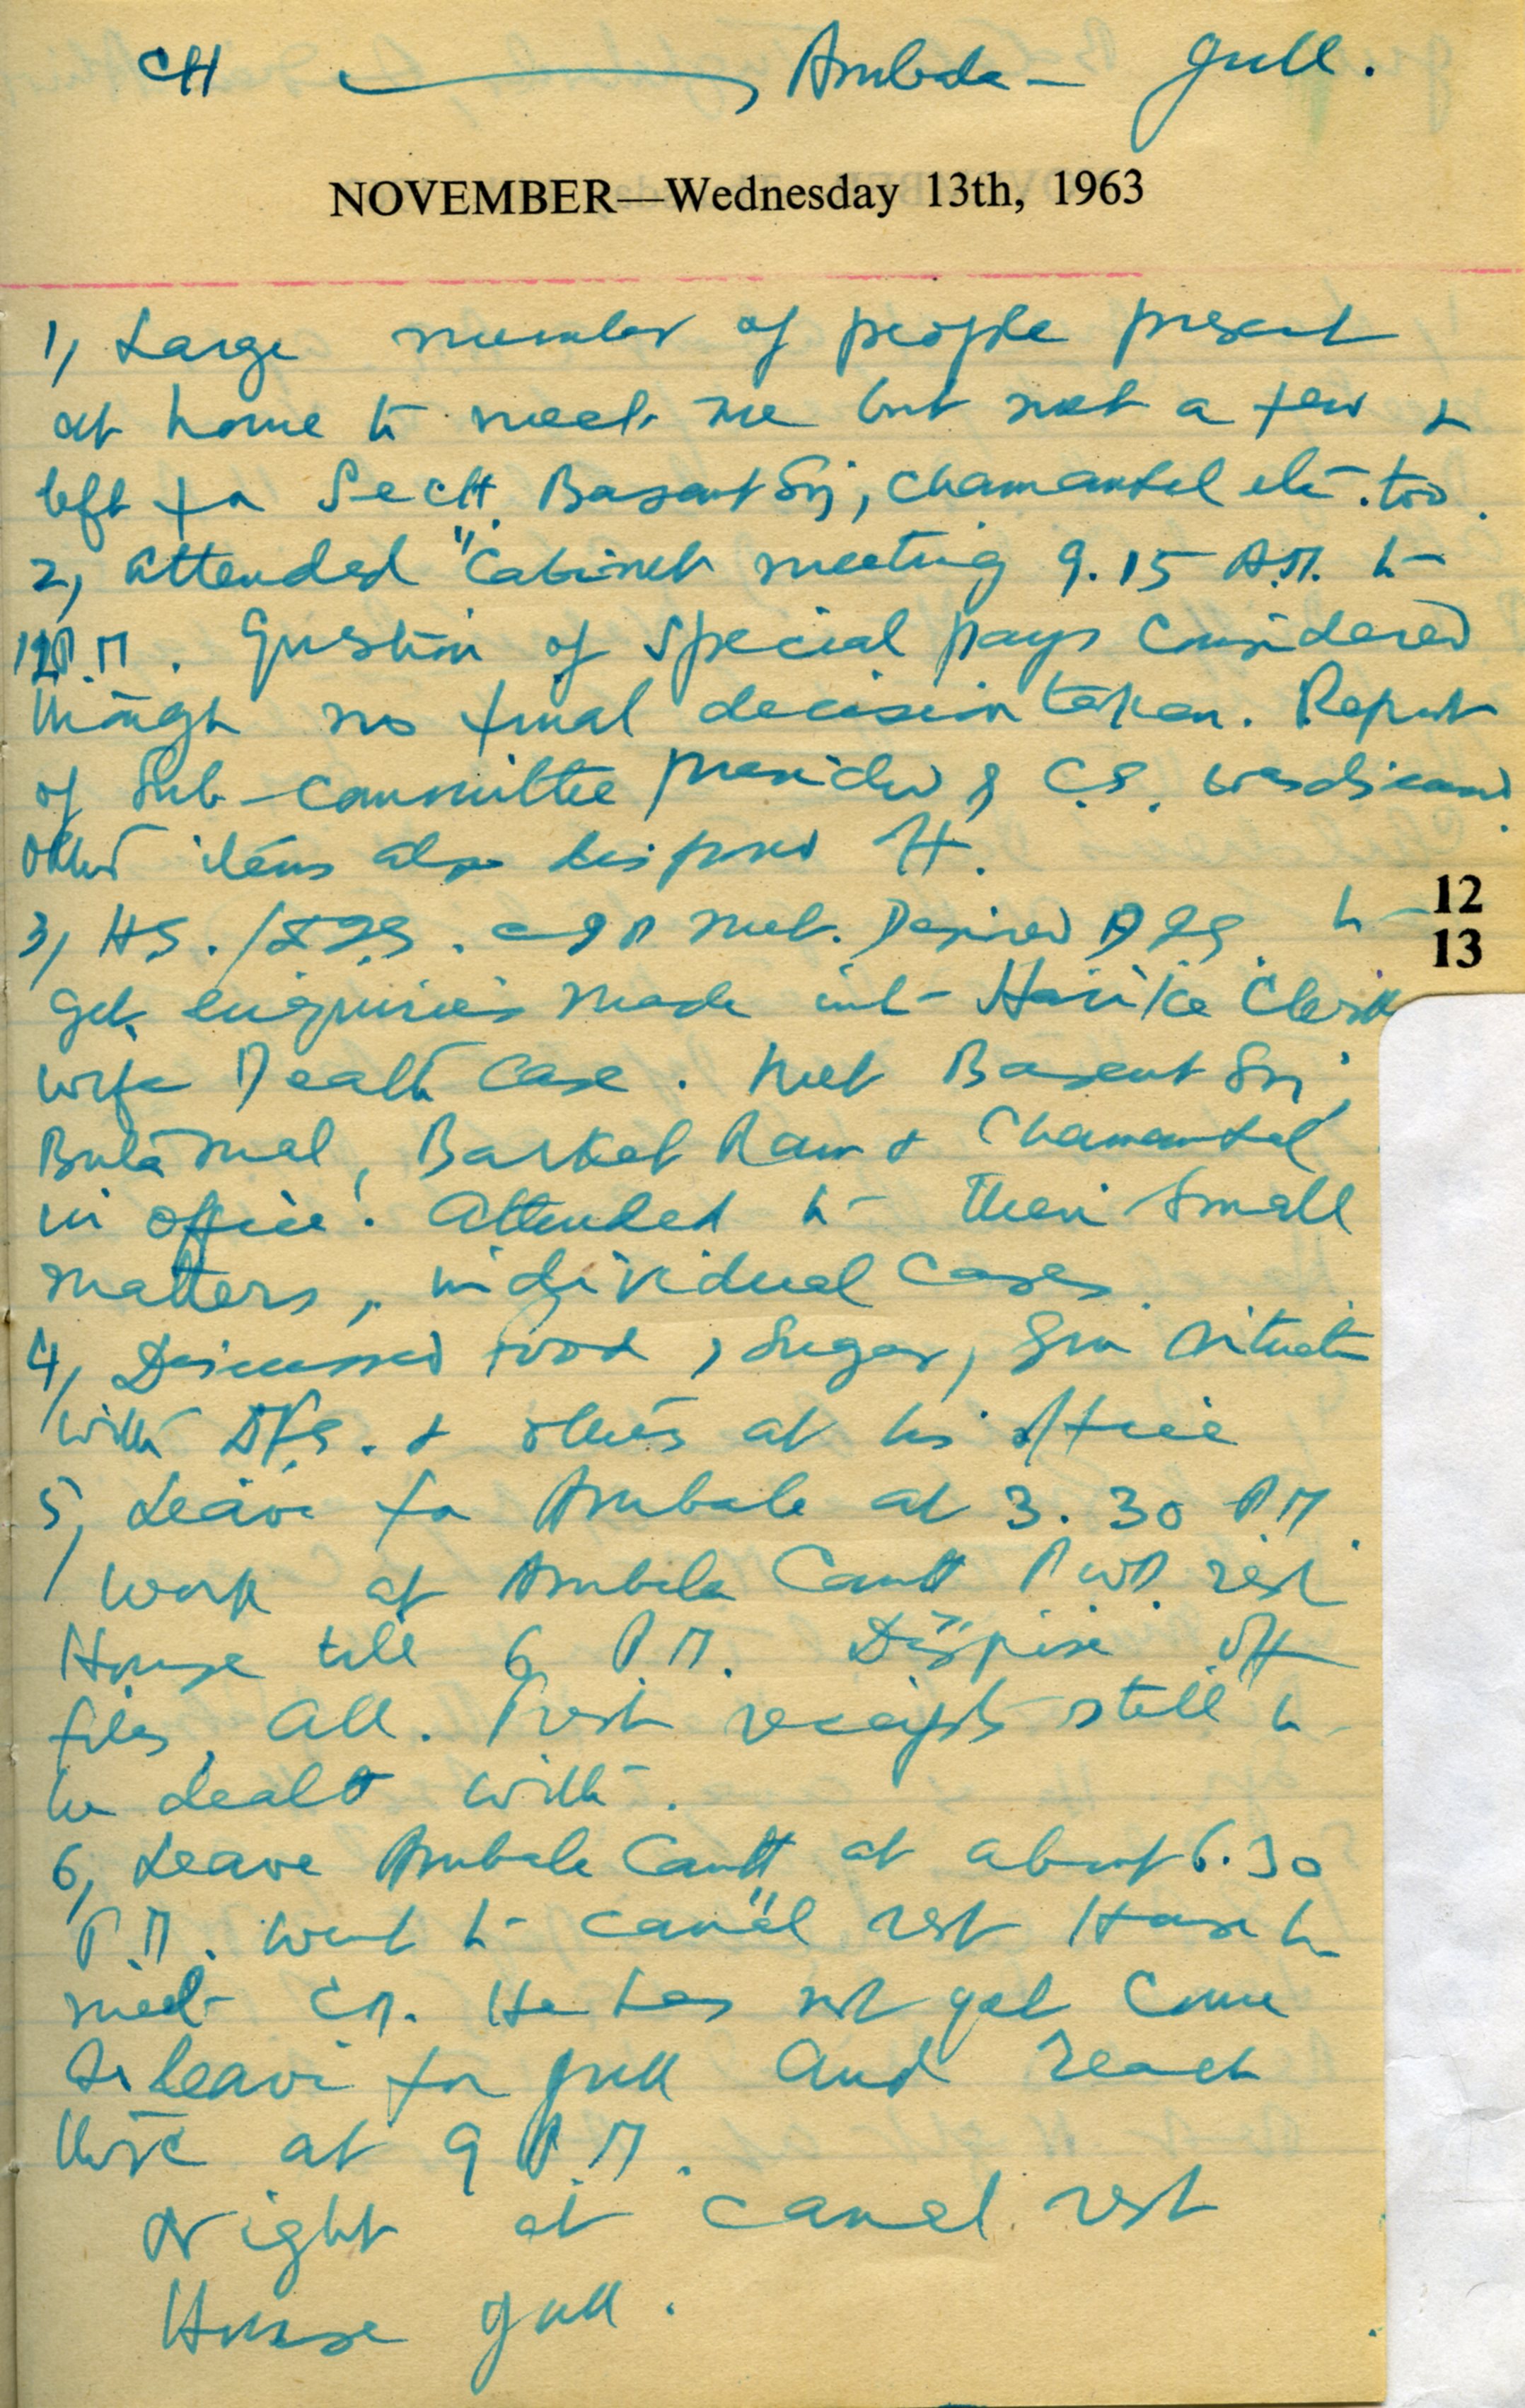 CH Ambala - Jull.
NOVEMBER—Wednesday 13th, 1963
1, Large number of people present
at home to meet me but met a few &
left for Sectt. Basant Sn, Chamanlal etc. too.
2, Attended "Cabinet meeting 9.15 A.M. to
12 P.M. Question of special pays considered
though no final decision taken. Report
of Sub-committee presided by C.S. was discussed.
other items also disposed off.
3, HS. met. Desired to
get enquiries made into Harike Clerk
wife Death case. Met Basant Sn,
Buta Mal, Barkat Ram & Chamanlal
in office. Attended to their small
matters, individual cases.
4, Discussed Food, Sugar, situation
with DFS. & others at his office
5, Leave for Ambala at 3.30 P.M.
Work at Ambala Cantt PWD rest
House till 6 P.M. Dispose off
files, all. Post receipts still to
be dealt with.
6, Leave Ambala Cantt at about 6.30
P.M. went to canal rest House to
meet CM. He has not yet come
So leave for Jull and reach
there at 9 P.M.
Night at canal rest
House Jull.
12
13